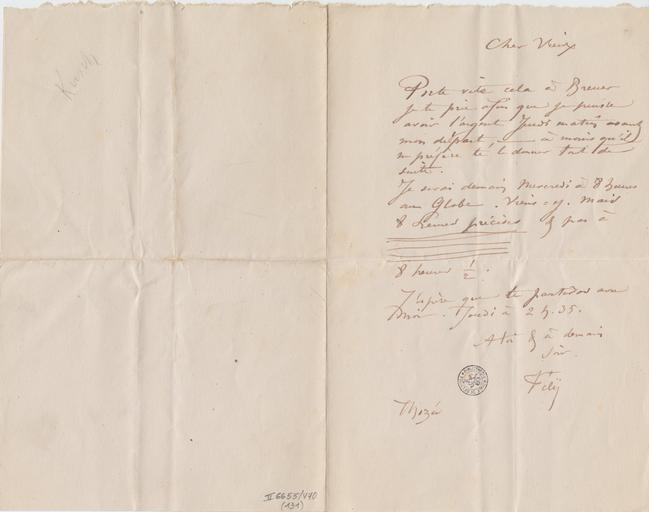 Cher Vieux
Porte vite cela à Breuer
je te prie afin que je puisse
avoir l'argent Jeudi matin avant
mon départ à moins qu'il
ne préfère te le donner tout de
suite.
Je serai demain Mercredi à 8 heures
au Globe. Viens-y. Mais
8 heures précises & pas à
8 heures 1/2.
J'espère que tu partiras avec
moi. Jeudi à 2 h. 35.
A toi & à demain
soir.
Fély
Kusch
II 6655/470
(131)